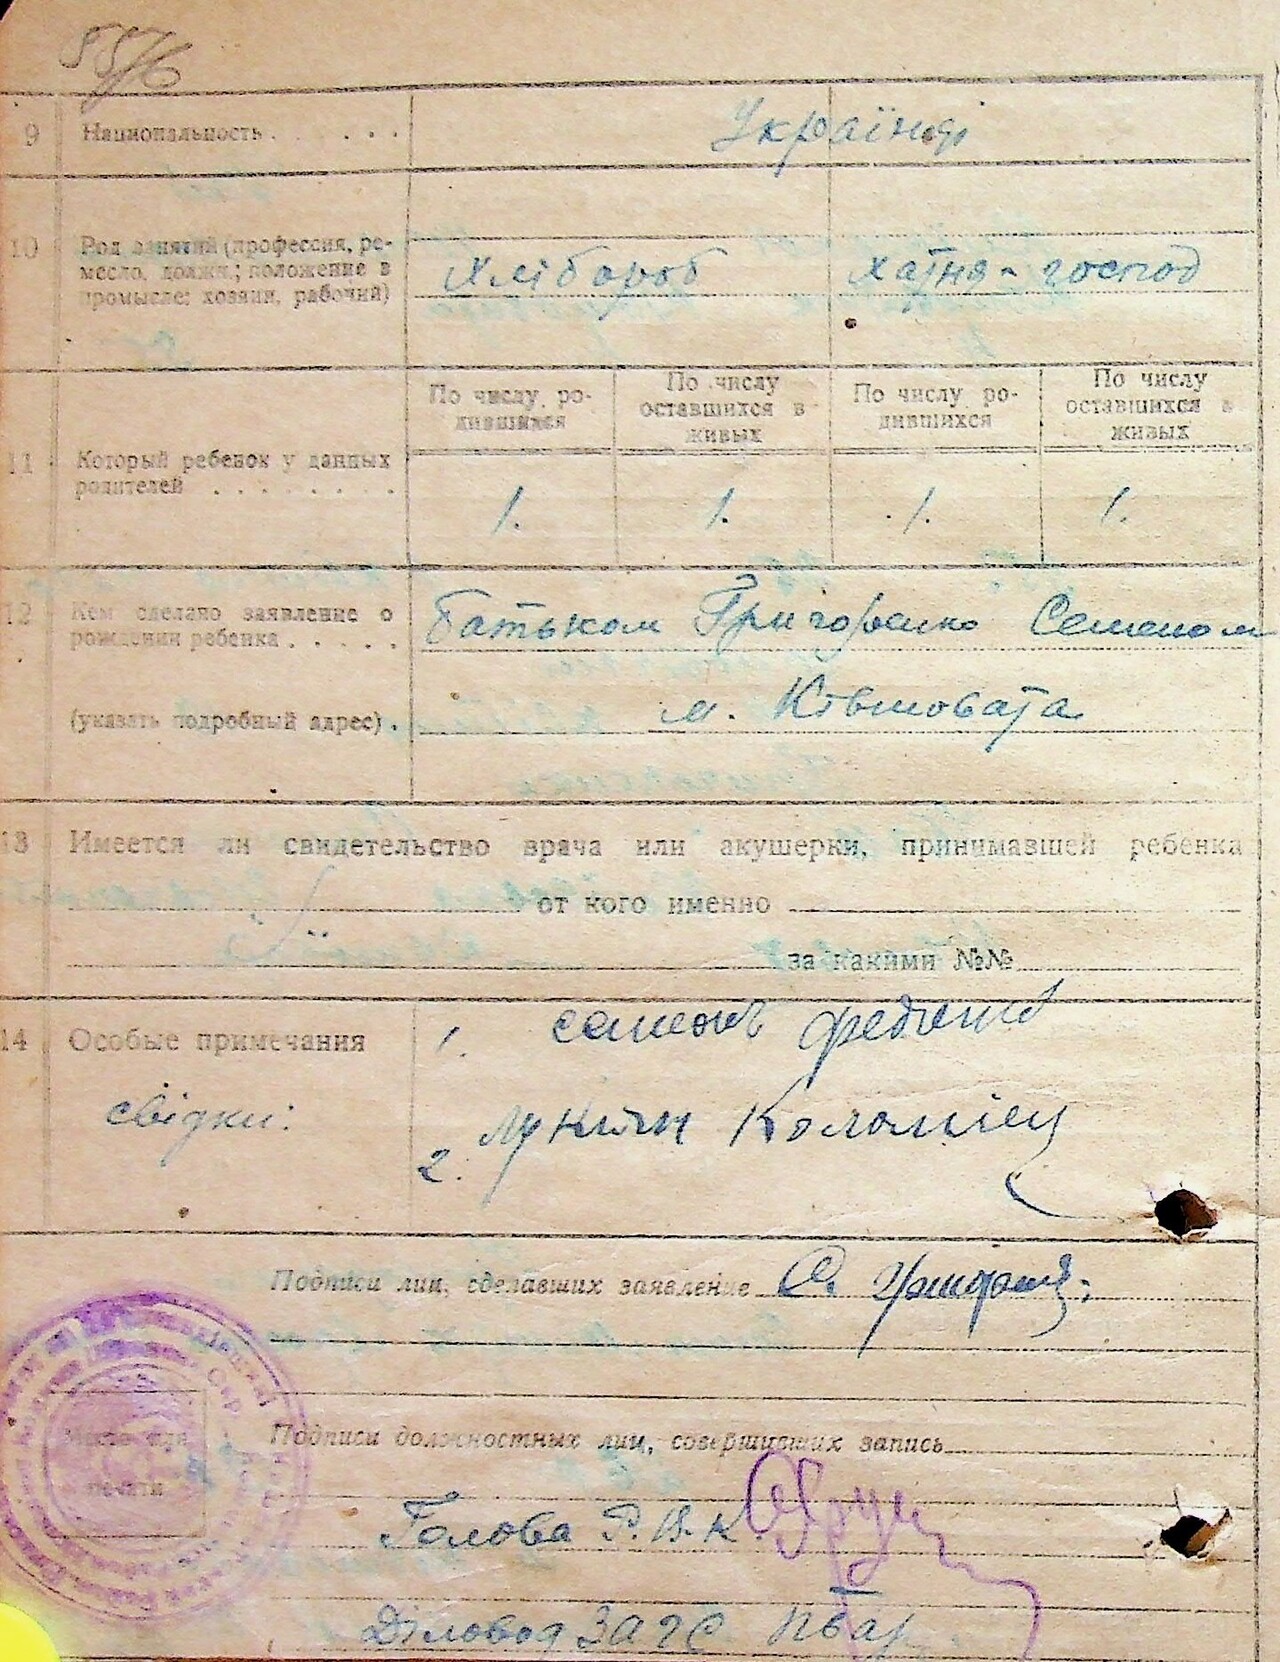 55/6
9 Национальность . . . . . . Українці
10 Род занятий (профессия, ре-
месло, должн.; положение в
промысле: хозяин, рабочий)
Хлібороб хатня - господ
По числу ро-
дившихся
По числу
оставшихся в
живых
По числу ро-
дившихся
По числу
оставшихся в
живых
11 Который ребенок у данных
родителей . . . . . . . .
1. 1. 1. 1.
12 Кем сделано заявление о
рождении ребенка . . . . .
Батьком Григоренко Семеном
(указать подробный адрес) . м. Ківшовата
13 Имеется ли свидетельство врача или акушерки, принимавшей ребенка
от кого именно
за какими №№
14 Особые примечания
свідки:
1. семен
2. Лукіян Коломіец
Подписи лиц, сделавших заявление С.
Место для
печати
Подписи должностных лиц, совершивших запись
Голова Р.В.К.
Діловод ЗАГС